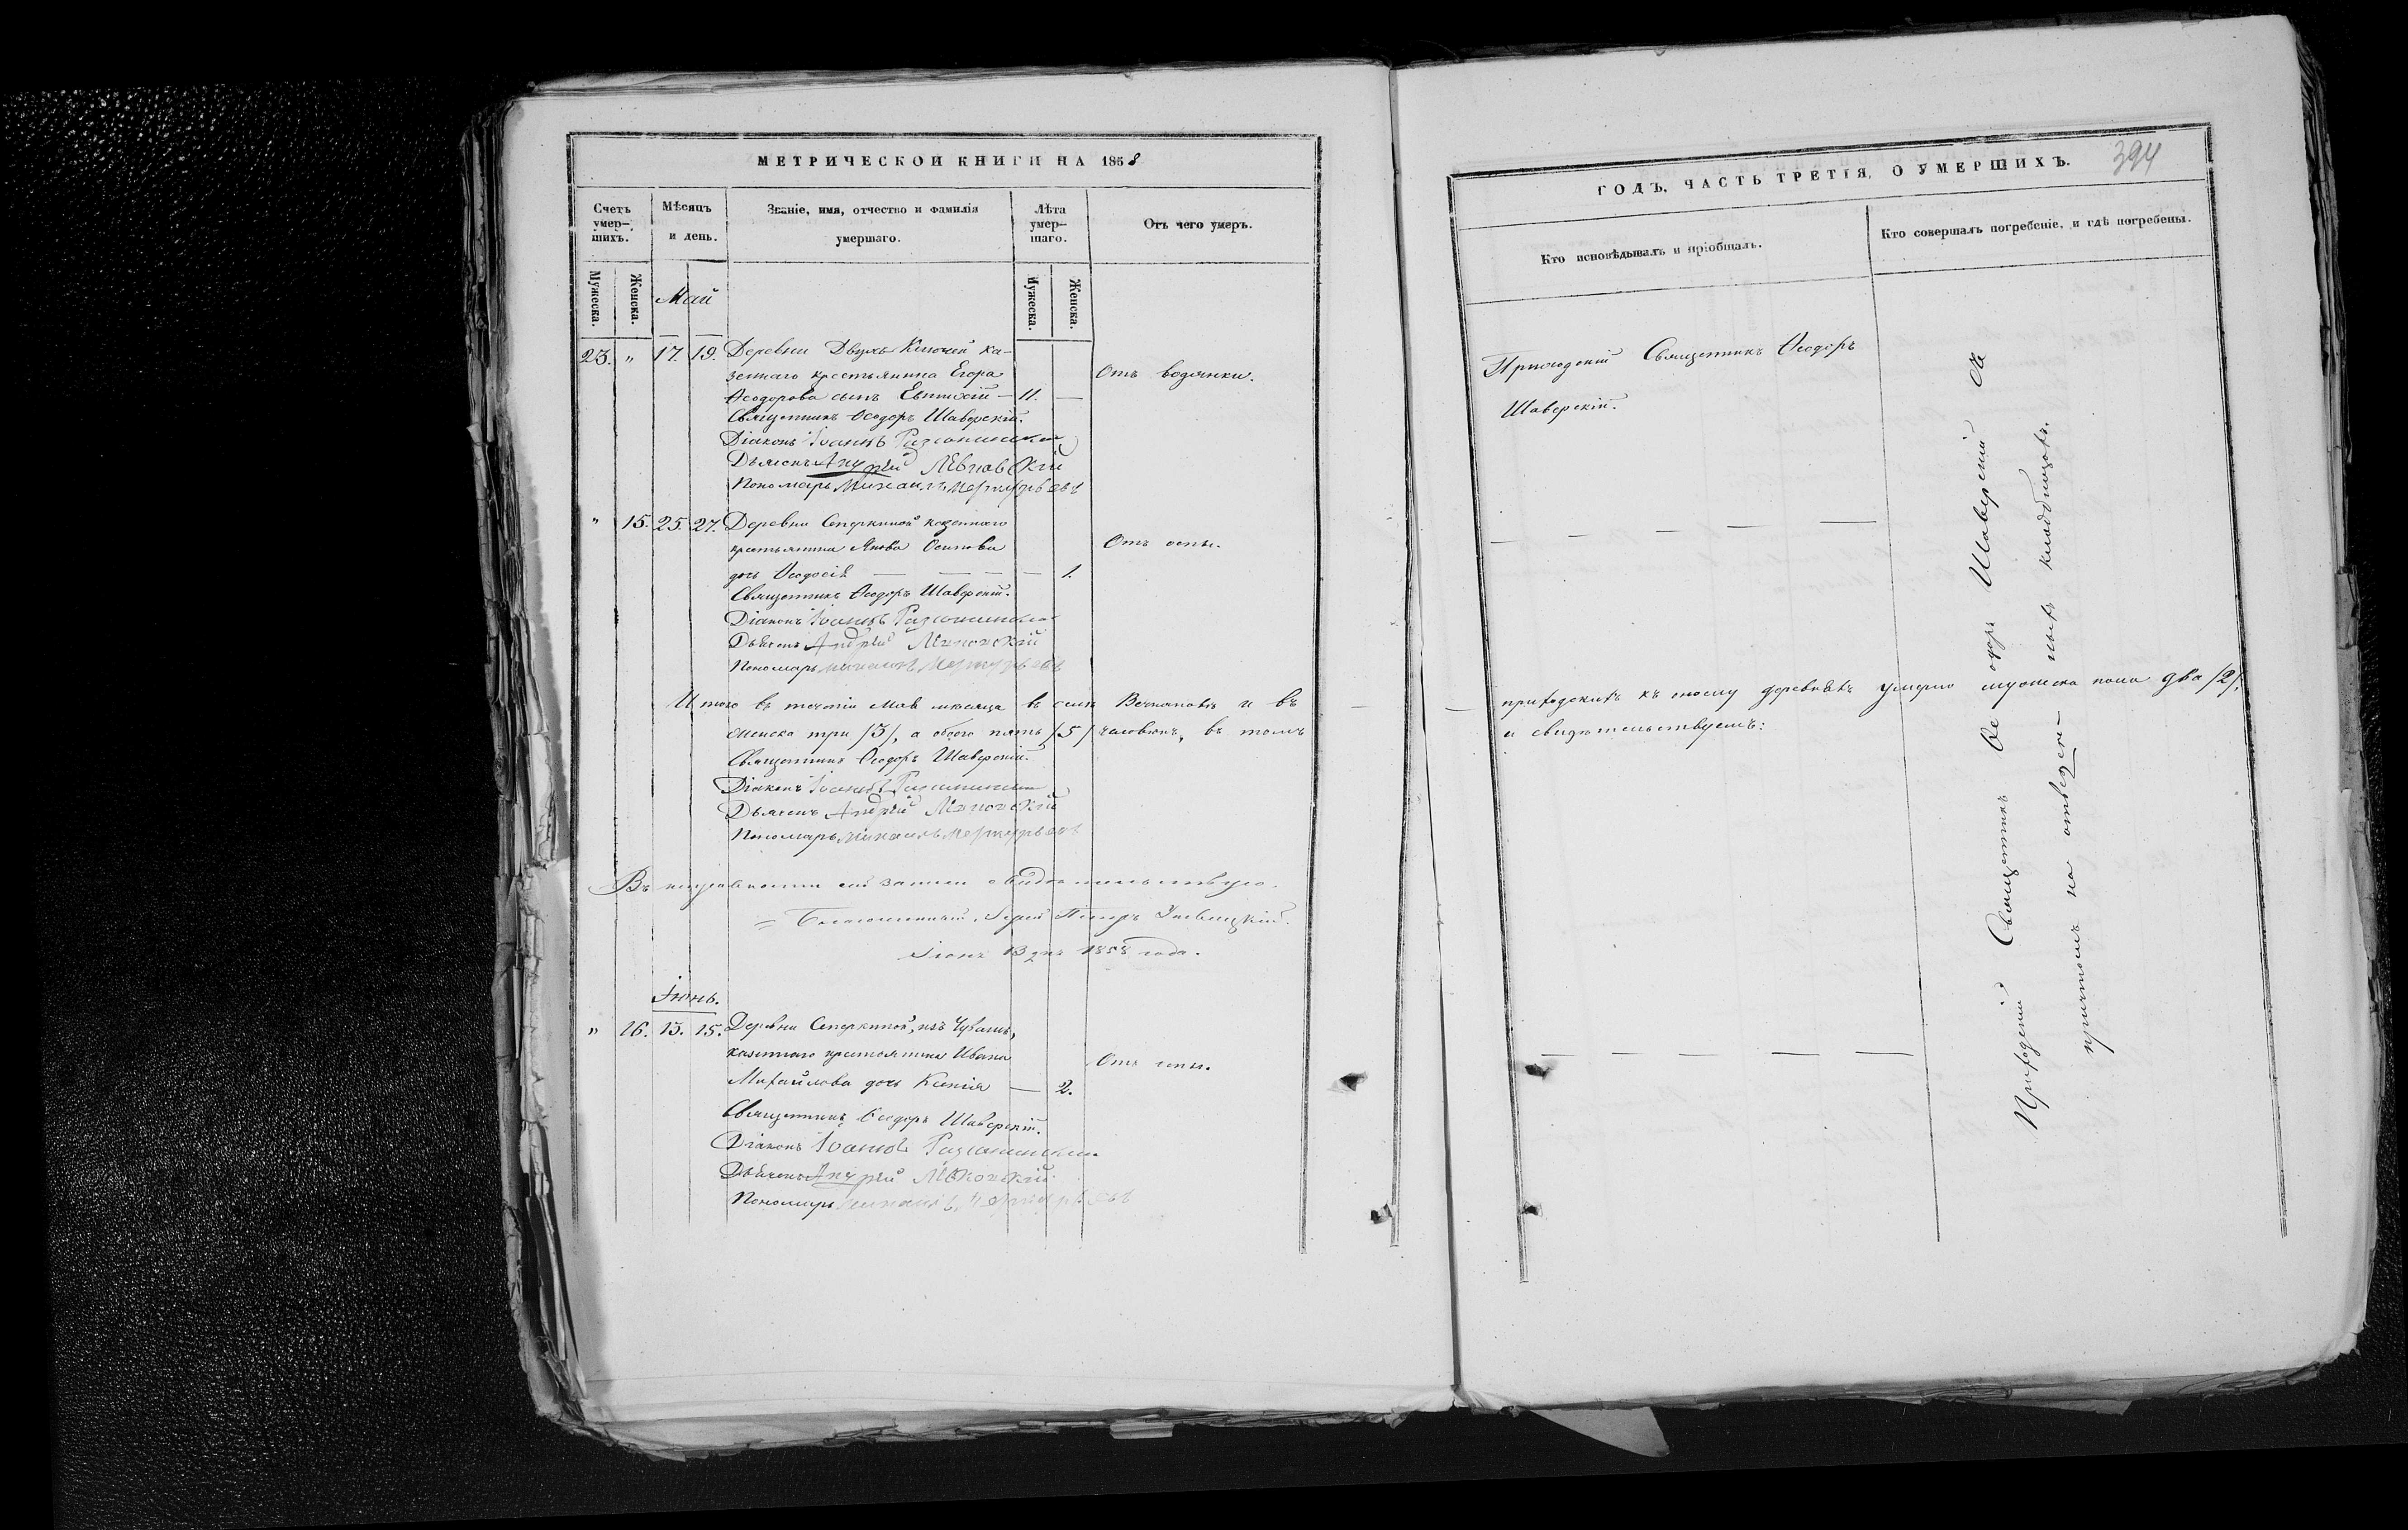 МЕТРИЧЕСКОЙ КНИГИ НА 1858
Счетъ умер-шихъ.
Мѣсяцъ и день.
Званіе, имя, отчество и фамилія умершаго.
Лѣта умер-шаго.
Отъ чего умеръ.
Мужеска.
Женска.
Май
Мужеска.
Женска.
23. " 17. 19. Деревни Двухъ Ключей ка-
зеннаго крестьянина Егора
Отъ водянки.
Ѳеодорова сынъ Евтихій — 11. —
Священникъ Ѳеодоръ Шаверскій.
Діаконъ Іоаннъ
Дьячекъ Андрей
Пономарь Михаилъ Меркурьевъ
" 15. 25. 27. Деревни Сперкиной казеннаго
крестьянина Якова Осипова
Отъ оспы.
дочь Ѳеодосія — — — — 1.
Священникъ Ѳеодоръ Шаверскій.
Діаконъ Іоаннъ
Дьячекъ Андрей
Пономарь Михаилъ Меркурьевъ
Итого въ теченіи Мая мѣсяца въ селѣ и въ
женска три /3/, а обоего пять /5/ человѣкъ, въ томъ
Священникъ Ѳеодоръ Шаверскій.
Діаконъ Іоаннъ
Дьячекъ Андрей
Пономарь Михаилъ Меркурьевъ
Въ исправности сей записи свидѣтельствую.
Благочинный, Іерей Петръ
Іюня 13 дня 1858 года.
Іюнь.
" 16. 13. 15. Деревни Сперкиной, изъ Чувашъ,
казеннаго крестьянина Ивана
Отъ оспы.
Михайлова дочь Ксенія — 2.
Священникъ Ѳеодоръ Шаверскій.
Діаконъ Іоаннъ
Дьячекъ Андрей
Пономарь Михаилъ Меркурьевъ
ГОДЪ, ЧАСТЬ ТРЕТІЯ, О УМЕРШИХЪ.
394
Кто исповѣдывалъ и пріобщалъ.
Кто совершалъ погребеніе, и гдѣ погребены.
Приходскій Священникъ Ѳеодоръ
Шаверскій.
приходскихъ къ оному деревняхъ умерло мужеска пола два /2/,
и свидѣтельствуемъ:
Приходскій Священникъ Ѳеодоръ Шаверскій съ
причтомъ на отведен-номъ кладбищѣ.